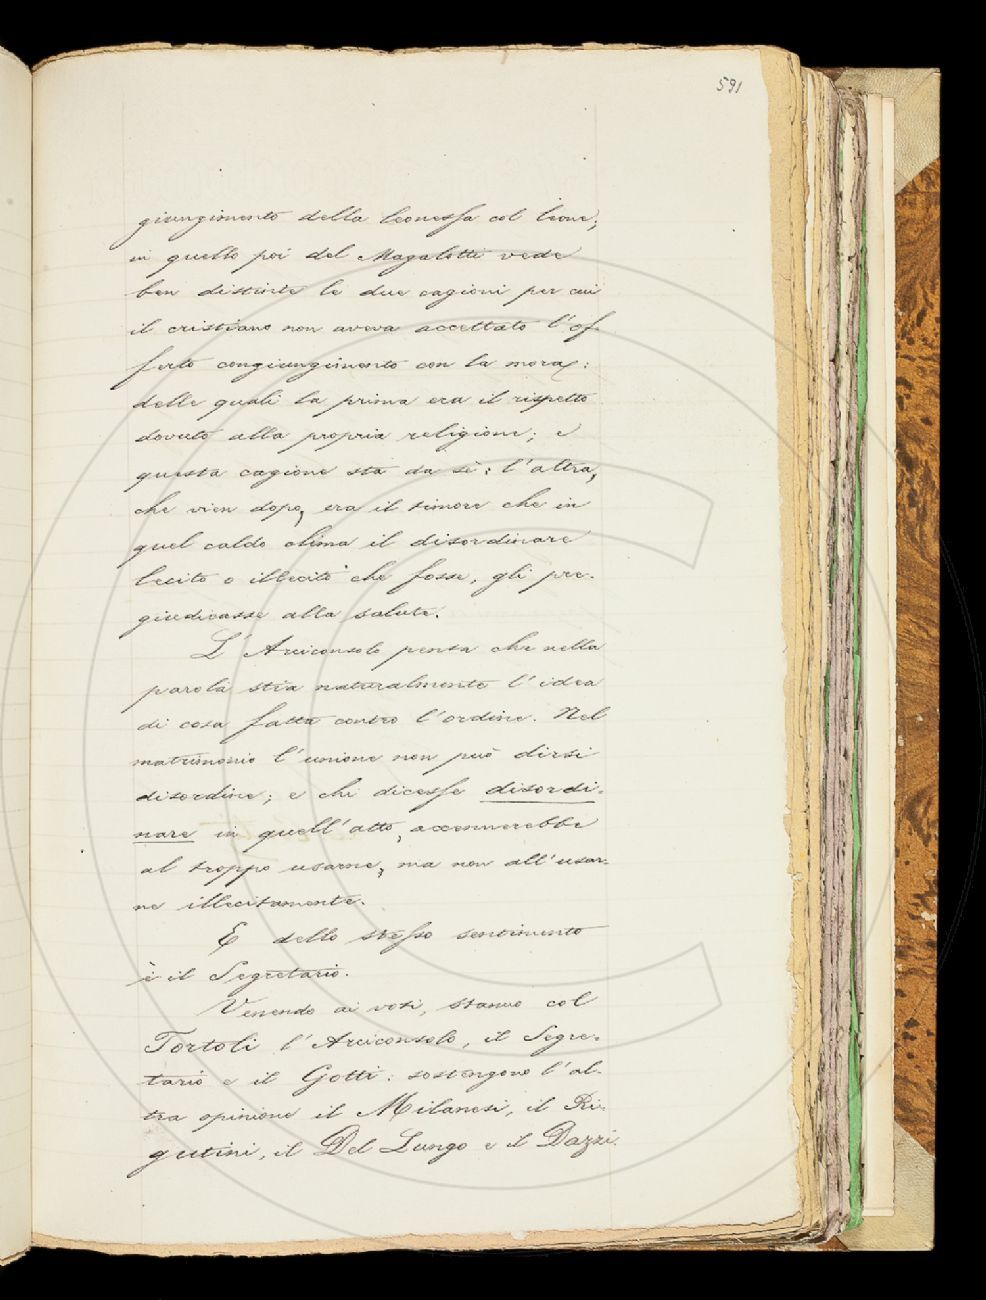 591
giungimento della leonessa col leone;
in quello poi del Magalotti vede
ben distinte le due cagioni per cui
il cristiano non aveva accettato l'of-
ferto congiungimento con la mora:
delle quali la prima era il rispetto
dovuto alla propria religione; e
questa cagione sta da sè: l'altra,
che vien dopo, era il timore che in
quel caldo clima il disordinare
lecito o illecito che fosse, gli pre-
giudicasse alla salute.
L'Arciconsolo pensa che nella
parola stia naturalmente l'idea
di cosa fatta contro l'ordine. Nel
matrimonio l'unione non può dirsi
disordine; e chi dicesse disordi-
nare in quell'atto, accennerebbe
al troppo usarne, ma non all'usar-
ne illecitamente.
E dello stesso sentimento
è il Segretario.
Venendo ai voti, stanno col
Tortoli l'Arciconsolo, il Segre-
tario e il Gotti: sostengono l'al-
tra opinione il Milanesi, il Ri-
gutini, il Del Lungo e il Dazzi.